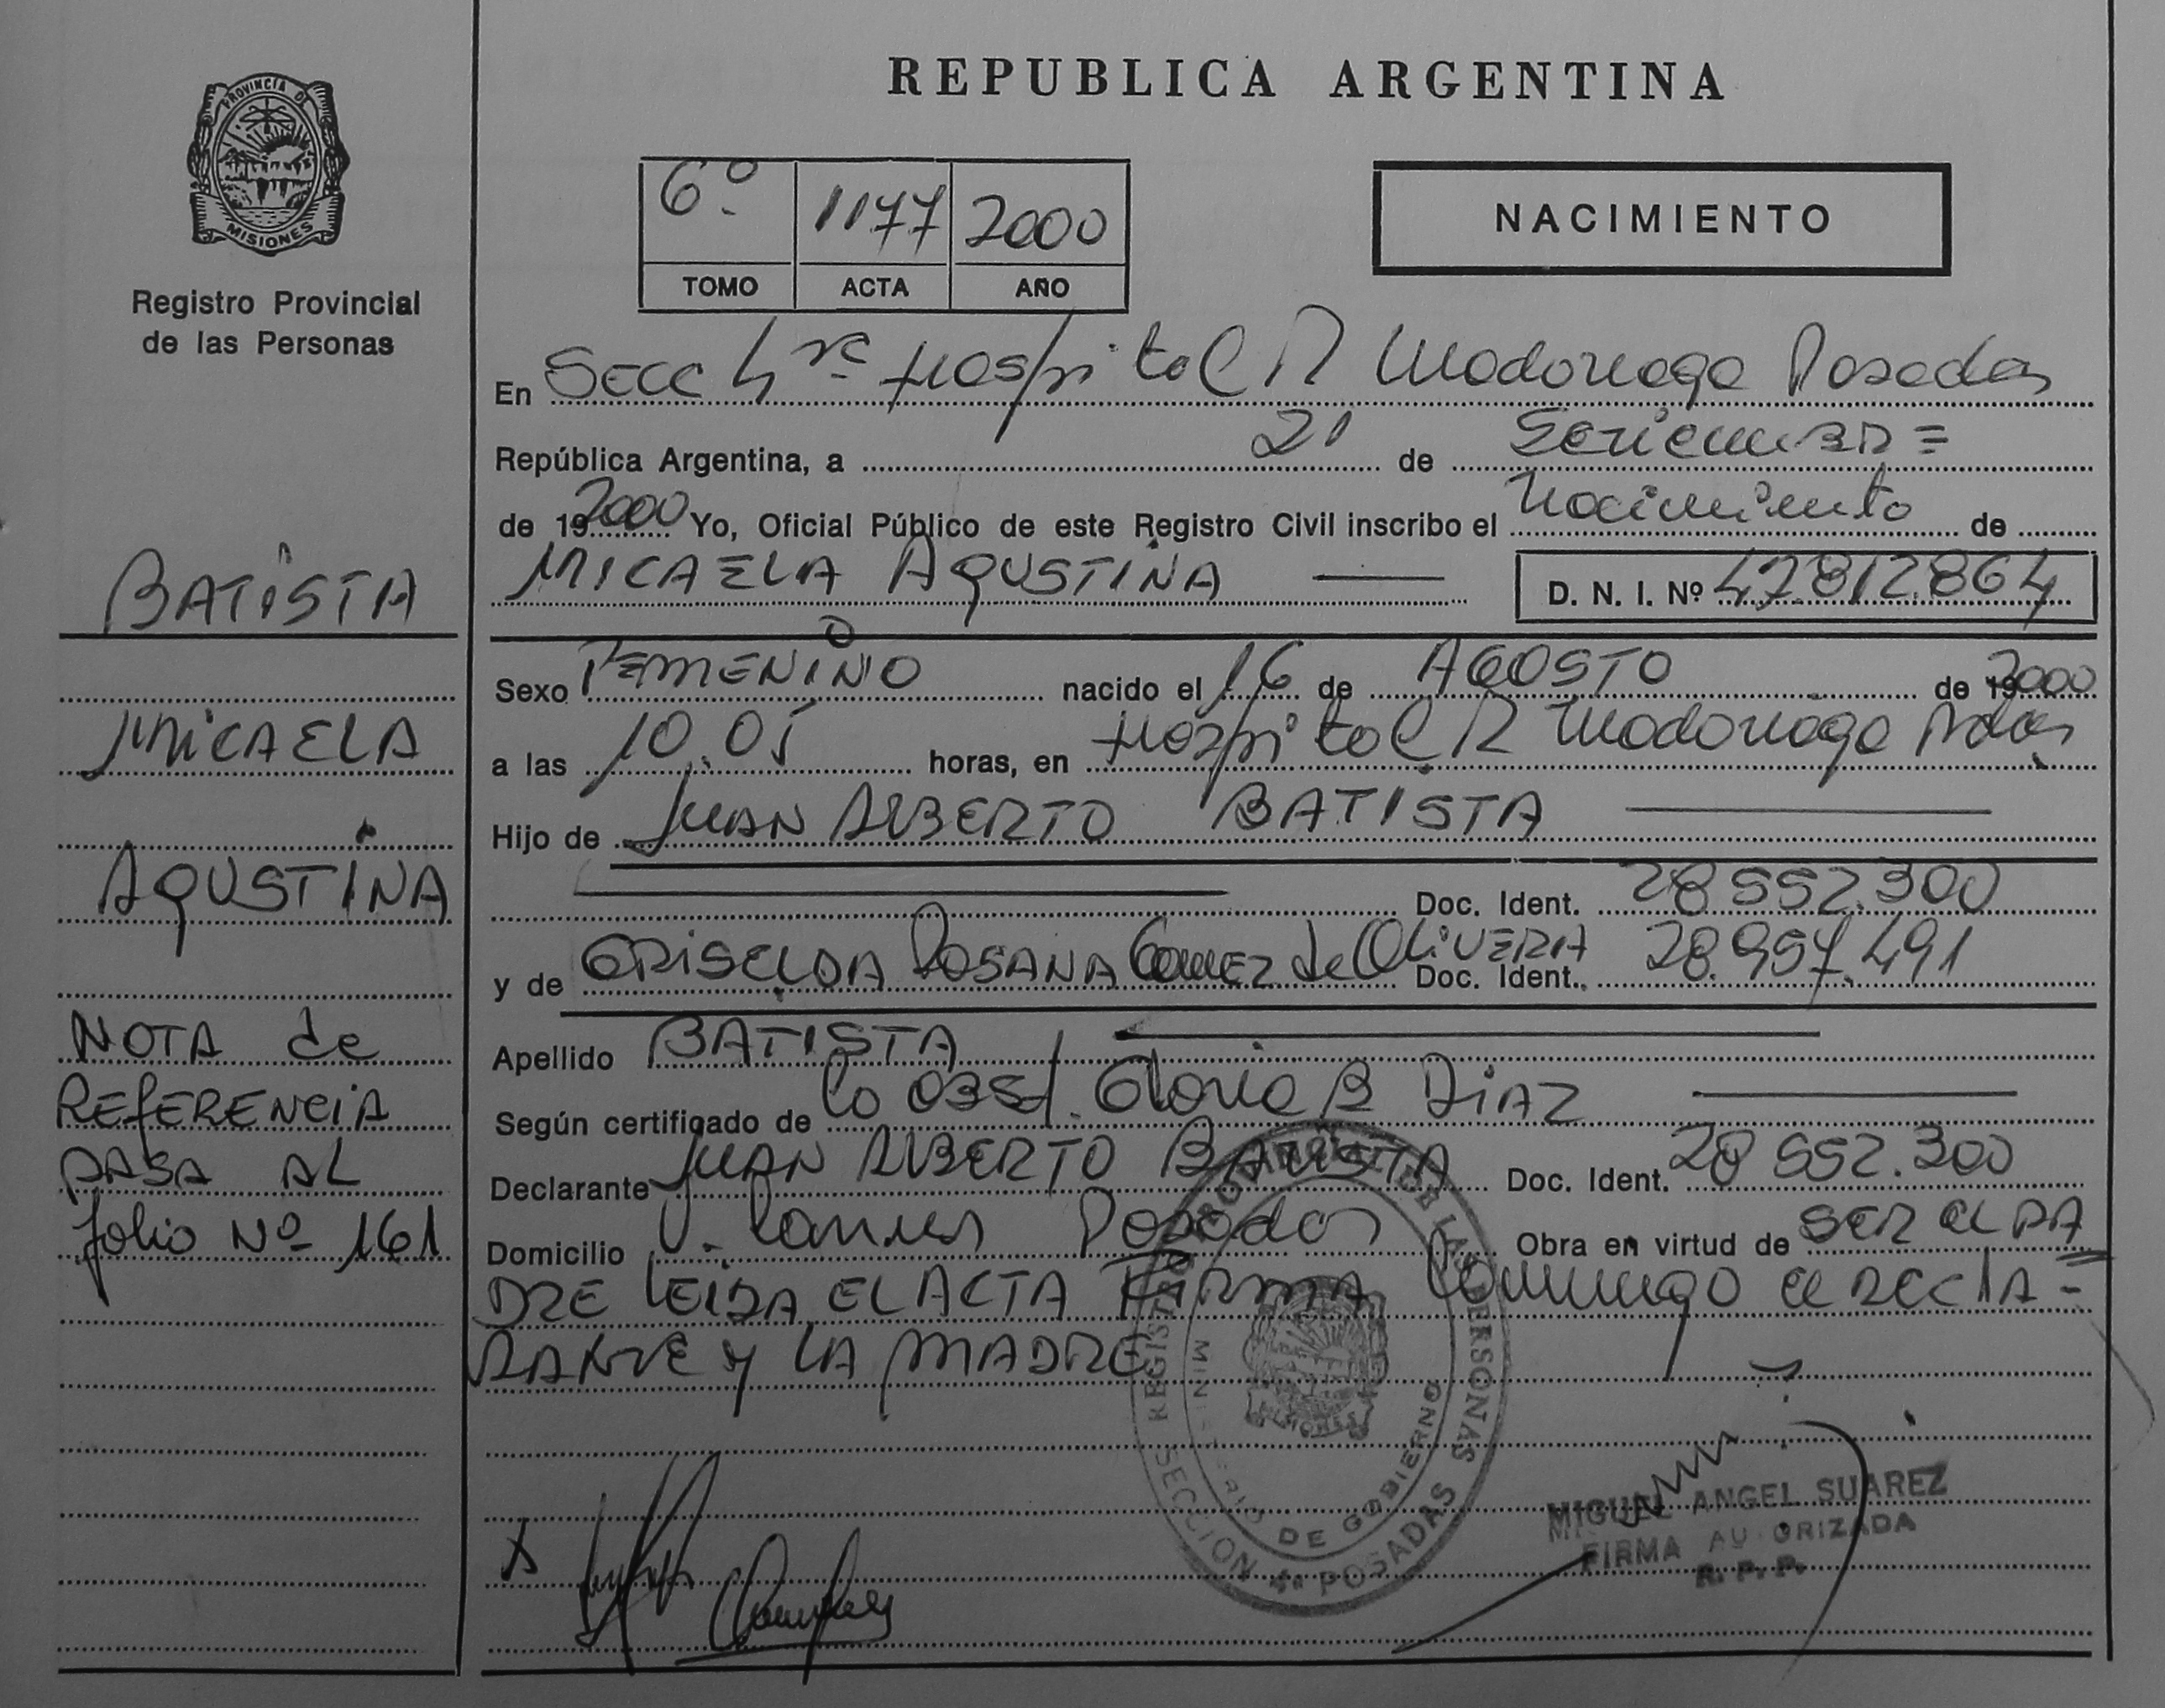 PROVINCIA DE
MISIONES
Registro Provincial
de las Personas
REPUBLICA ARGENTINA
6º 1177 2000
TOMO ACTA AÑO
NACIMIENTO
En Secc 4ta Hospital R Madariaga Posadas
República Argentina, a 21 de
de 19 2000 Yo, Oficial Público de este Registro Civil inscribo el Nacimiento de
MICAELA AGUSTINA D. N. I. Nº 42812864
Sexo FEMENINO nacido el 16 de AGOSTO de 19 2000
a las 10.05 horas, en Hospital R Madariaga Pdas
Hijo de JUAN ALBERTO BATISTA
Doc. Ident. 28 552.300
y de GRISELDA ROSANA GOMEZ de OLIVERA Doc. Ident. 28.957.491
Apellido BATISTA
Según certificado de la Obst. Gloria B DIAZ
Declarante JUAN ALBERTO BATISTA Doc. Ident. 28 552.300
Domicilio V. Lanus Posadas Obra en virtud de SER el PA
DRE LEIDA EL ACTA FIRMA conmigo el DECLA=
RANTE y LA MADRE
BATISTA
MICAELA
AGUSTINA
NOTA de
REFERENCIA
PASA AL
folio Nº 161
REGISTRO PROVINCIAL DE LAS PERSONAS
MINISTERIO DE GOBIERNO
SECCION 4ª POSADAS
MIGUEL ANGEL SUAREZ
FIRMA AUTORIZADA
R. P. P.